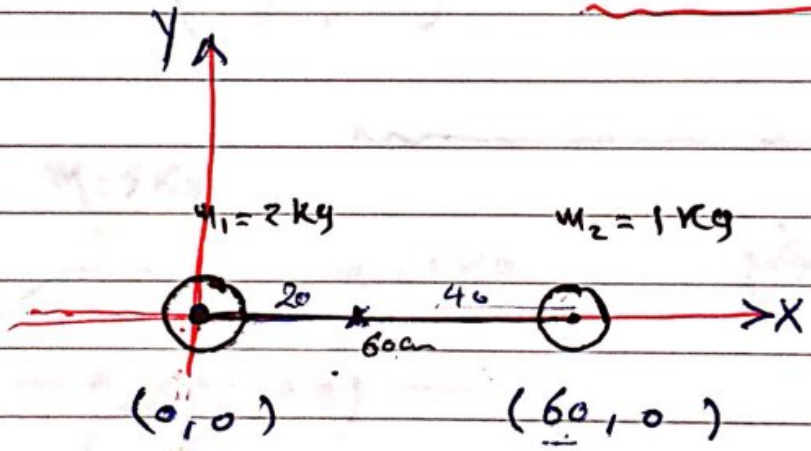 Y
m₁ = 2 kg
m₂ = 1 kg
20
40
X
60cm
(0,0)
(60,0)